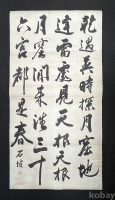 乾遇巽時探月窟地
逢雷處見天根天根
月窟閒來往三十
六宮都是春 石
kobay